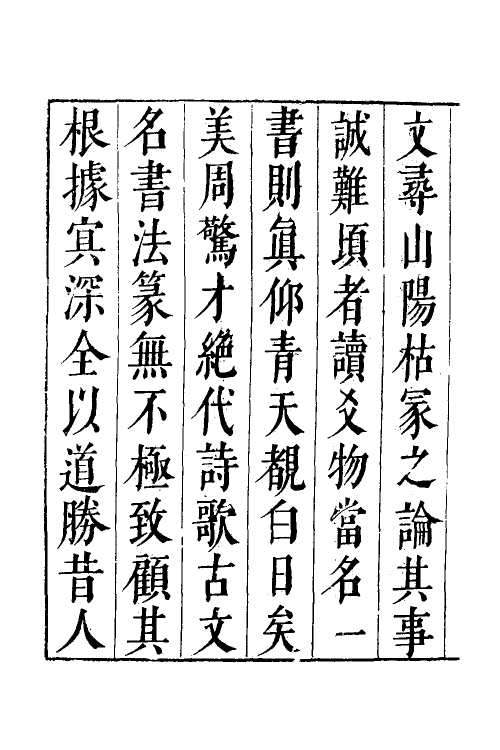 文尋山陽枯冢之論其事
誠難頃者讀爻物當名一
書則眞仰青天覩白日矣
美周驚才絕代詩歌古文
名書法篆無不極致顧其
根據㝠深全以道勝昔人